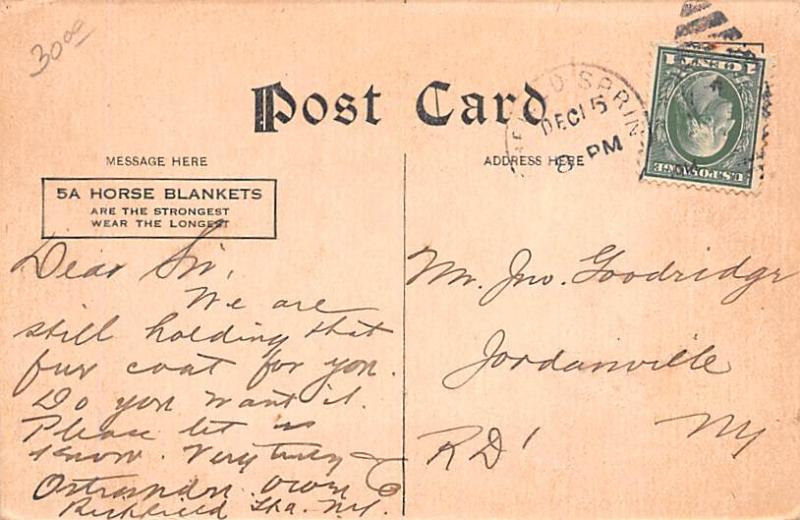 30.00
Post Card
MESSAGE HERE
ADDRESS HERE
5A HORSE BLANKETS
ARE THE STRONGEST
WEAR THE LONGEST
D SPRIN
DEC 15
8 PM
1 CENT 1
U.S. POSTAGE
Dear Sir,
We are
still holding that
fur coat for you.
Do you want it.
Please let us
know. Very truly
Ostrander
Richfield Spa. N.Y.
Mr. Jno. Goodridge
Jordanville
NY
RD 1